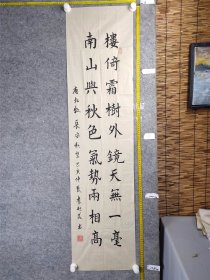 樓倚霜樹外鏡天無一毫
南山與秋色氣勢兩相高